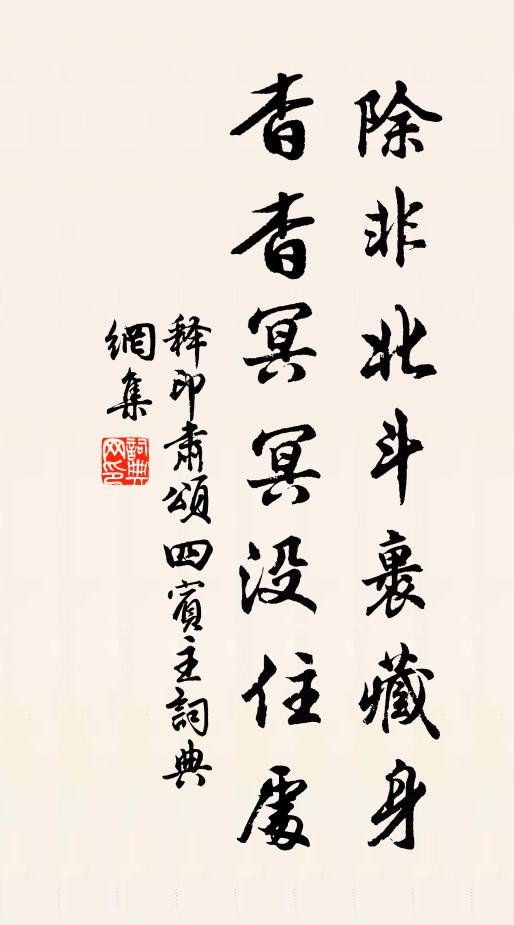 除非北斗裹藏身
杳杳冥冥没住處
释印肅頌四賓主詞典
網集
詞典
网印